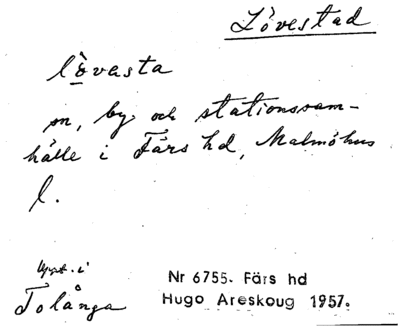 Lövestad
lövesta
sn, by och stationssam-
hälle i Färs hd, Malmöhus
l.
Uppt. i
Tolånga
Nr 6755. Färs hd
Hugo Areskoug 1957.